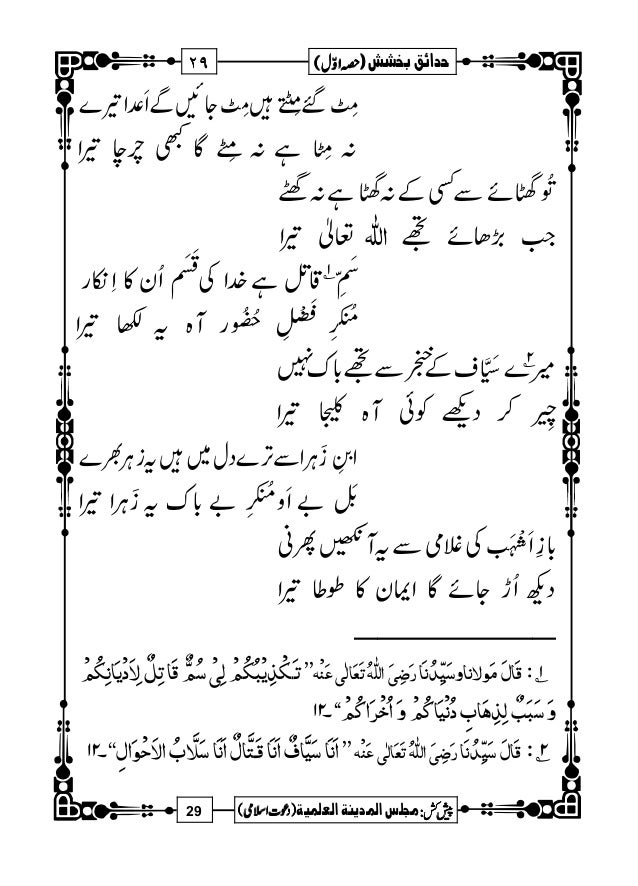 ۲۹
حدائق بخشش (حصہ اوّل)
مِٹ گئے مِٹتے ہیں مِٹ جائیں گے اَعدا تیرے
نہ مِٹا ہے نہ مِٹے گا کبھی چرچا تیرا
تُو گھٹائے سے کسی کے نہ گھٹا ہے نہ گھٹے
جب بڑھائے تجھے اللہ تعالیٰ تیرا
سَمِّ ۱؎ قاتل ہے خدا کی قَسَم اُن کا اِنکار
مُنکرِ فَضْلِ حُضُور آہ یہ لکھا تیرا
میرے ۲؎ سَیَّاف کے خنجر سے تجھے باک نہیں
چِیر کر دیکھے کوئی آہ کلیجا تیرا
ابنِ زَہرا سے ترے دل میں ہیں یہ زہر بھرے
بَل بے اَو مُنکرِ بے باک یہ زَہرا تیرا
بازِ اَشْہَب کی غلامی سے یہ آنکھیں پھرنی
دیکھ اُڑ جائے گا ایمان کا طوطا تیرا
۱؎ : قَالَ مَولانا وسَیِّدُنَا رَضِیَ اللّٰہُ تَعَالٰی عَنْہ ’’تَکْذِیْبُکُمْ لِیْ سُمٌّ قَاتِلٌ لِاَدْیَانِکُمْ
وَ سَبَبٌ لِذِھَابِ دُنْیَاکُمْ وَ اُخْرَاکُمْ‘‘۔۱۲
۲؎ : قَالَ سَیِّدُنَا رَضِیَ اللّٰہُ تَعَالٰی عَنْہ ’’اَنَا سَیَّافٌ اَنَا قَتَّالٌ اَنَا سَلَّابُ الْاَحْوَالِ‘‘۔۱۲
29
پیش کش: مجلس المدینۃ العلمیۃ (دعوتِ اسلامی)